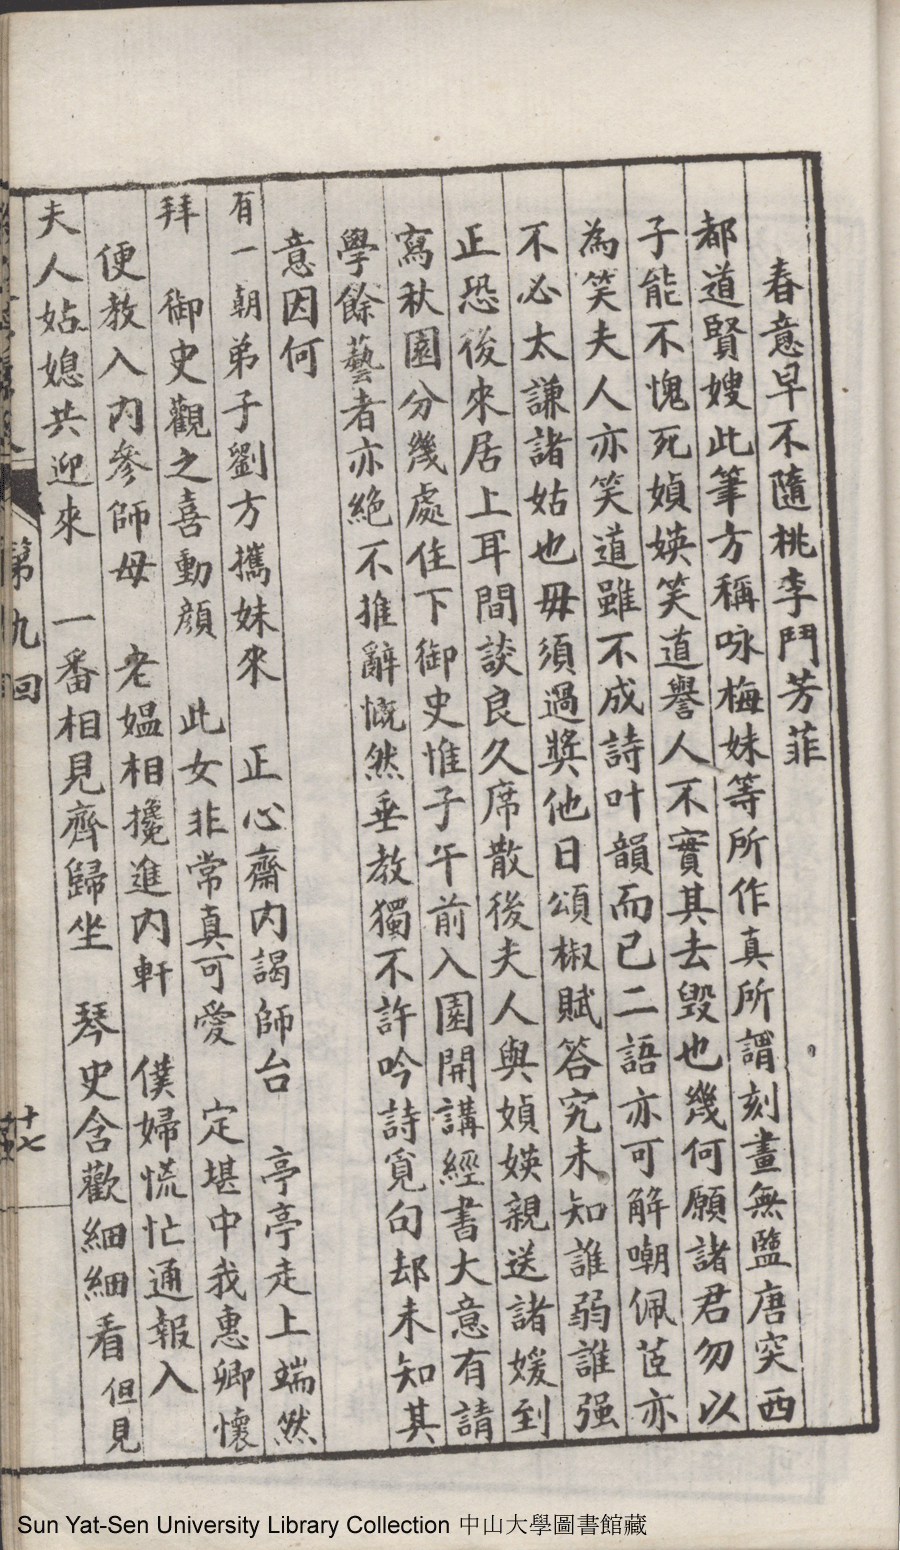 春意早不隨桃李鬥芳菲
都道賢嫂此筆方稱咏梅妹等所作真所謂刻畫無鹽唐突西
子能不愧死媜媖笑道譽人不實其去毀也幾何願諸君勿以
為笑夫人亦笑道雖不成詩叶韻而已二語亦可解嘲佩茝亦
不必太謙諸姑也毋須過獎他日頌椒賦答究未知誰弱誰强
正恐後來居上耳間談良久席散後夫人與媜媖親送諸媛到
寫秋園分幾處住下御史惟子午前入園開講經書大意有請
學餘藝者亦絕不推辭慨然垂教獨不許吟詩覓句却未知其
意因何
有一朝弟子劉方攜妹來 正心齋內謁師台 亭亭走上端然
拜 御史觀之喜動顏 此女非常真可愛 定堪中我惠卿懷
便教入內參師母 老媼相攙進內軒 僕婦慌忙通報入
夫人姑媳共迎來 一番相見齊歸坐 琴史含歡細細看 但見
第九回
十七
Sun Yat-Sen University Library Collection 中山大學圖書館藏